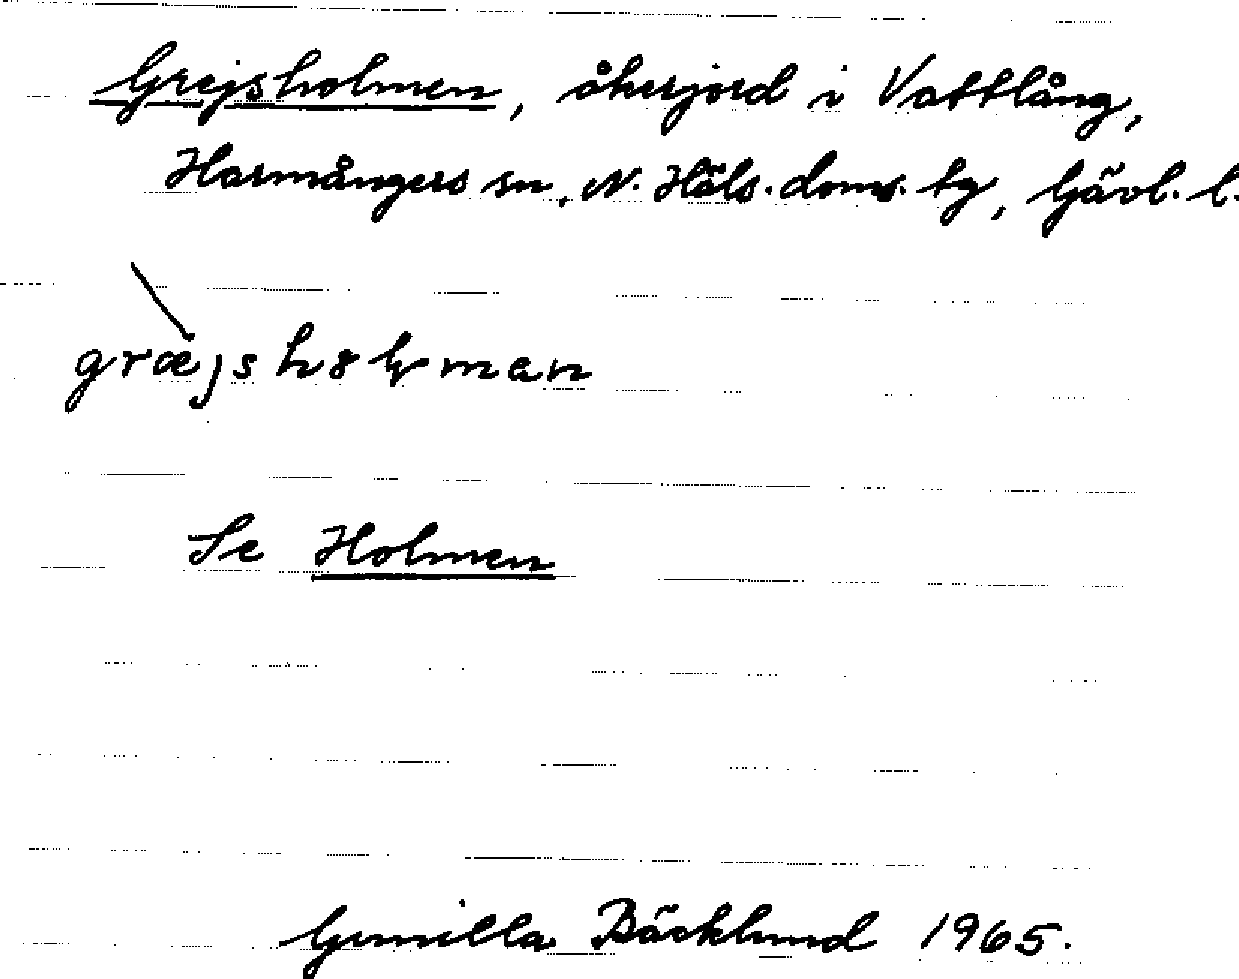 Grejsholmen, åkerjord i Vattlång,
Harmångers sn, N. Häls. doms. tg, Gävl. l.
græjshólman
Se Holmen
Gunilla Bäcklund 1965.